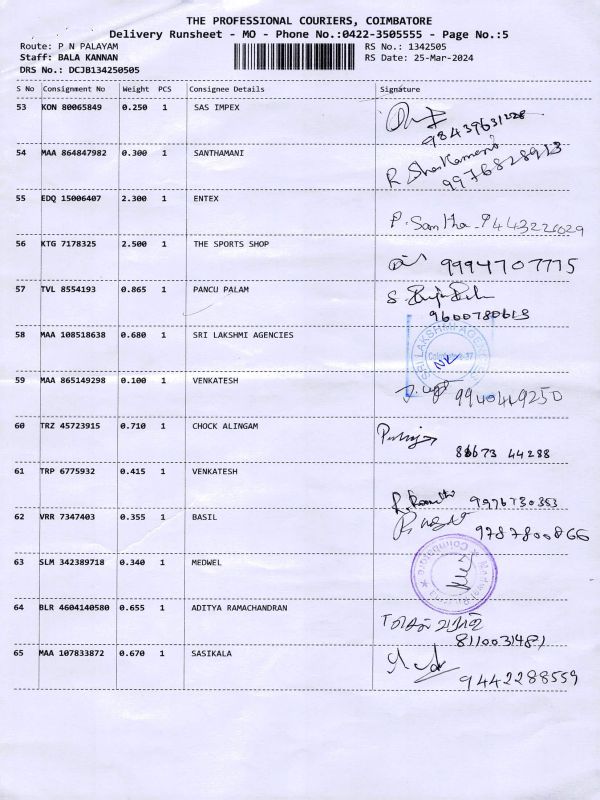 THE PROFESSIONAL COURIERS, COIMBATORE
Delivery Runsheet - MO - Phone No.:0422-3505555 - Page No.:5
Route: P N PALAYAM RS No.: 1342505
Staff: BALA KANNAN RS Date: 25-Mar-2024
DRS No.: DCJB134250505
S No Consignment No Weight PCS Consignee Details Signature
53 KON 80065849 0.250 1 SAS IMPEX
98439631228
54 MAA 864847982 0.300 1 SANTHAMANI
9976828913
55 EDQ 15006407 2.300 1 ENTEX
P. Santha - 9443226029
56 KTG 7178325 2.500 1 THE SPORTS SHOP
9994707775
57 TVL 8554193 0.865 1 PANCU PALAM
9600780613
58 MAA 108518638 0.680 1 SRI LAKSHMI AGENCIES
SRI LAKSHMI AGENCIES
59 MAA 865149298 0.100 1 VENKATESH
9940419250
60 TRZ 45723915 0.710 1 CHOCK ALINGAM
86673 44288
61 TRP 6775932 0.415 1 VENKATESH
9976730353
62 VRR 7347403 0.355 1 BASIL
9787800866
63 SLM 342389718 0.340 1 MEDWEL
64 BLR 4604140580 0.655 1 ADITYA RAMACHANDRAN
8110031481
65 MAA 107833872 0.670 1 SASIKALA
9442288559